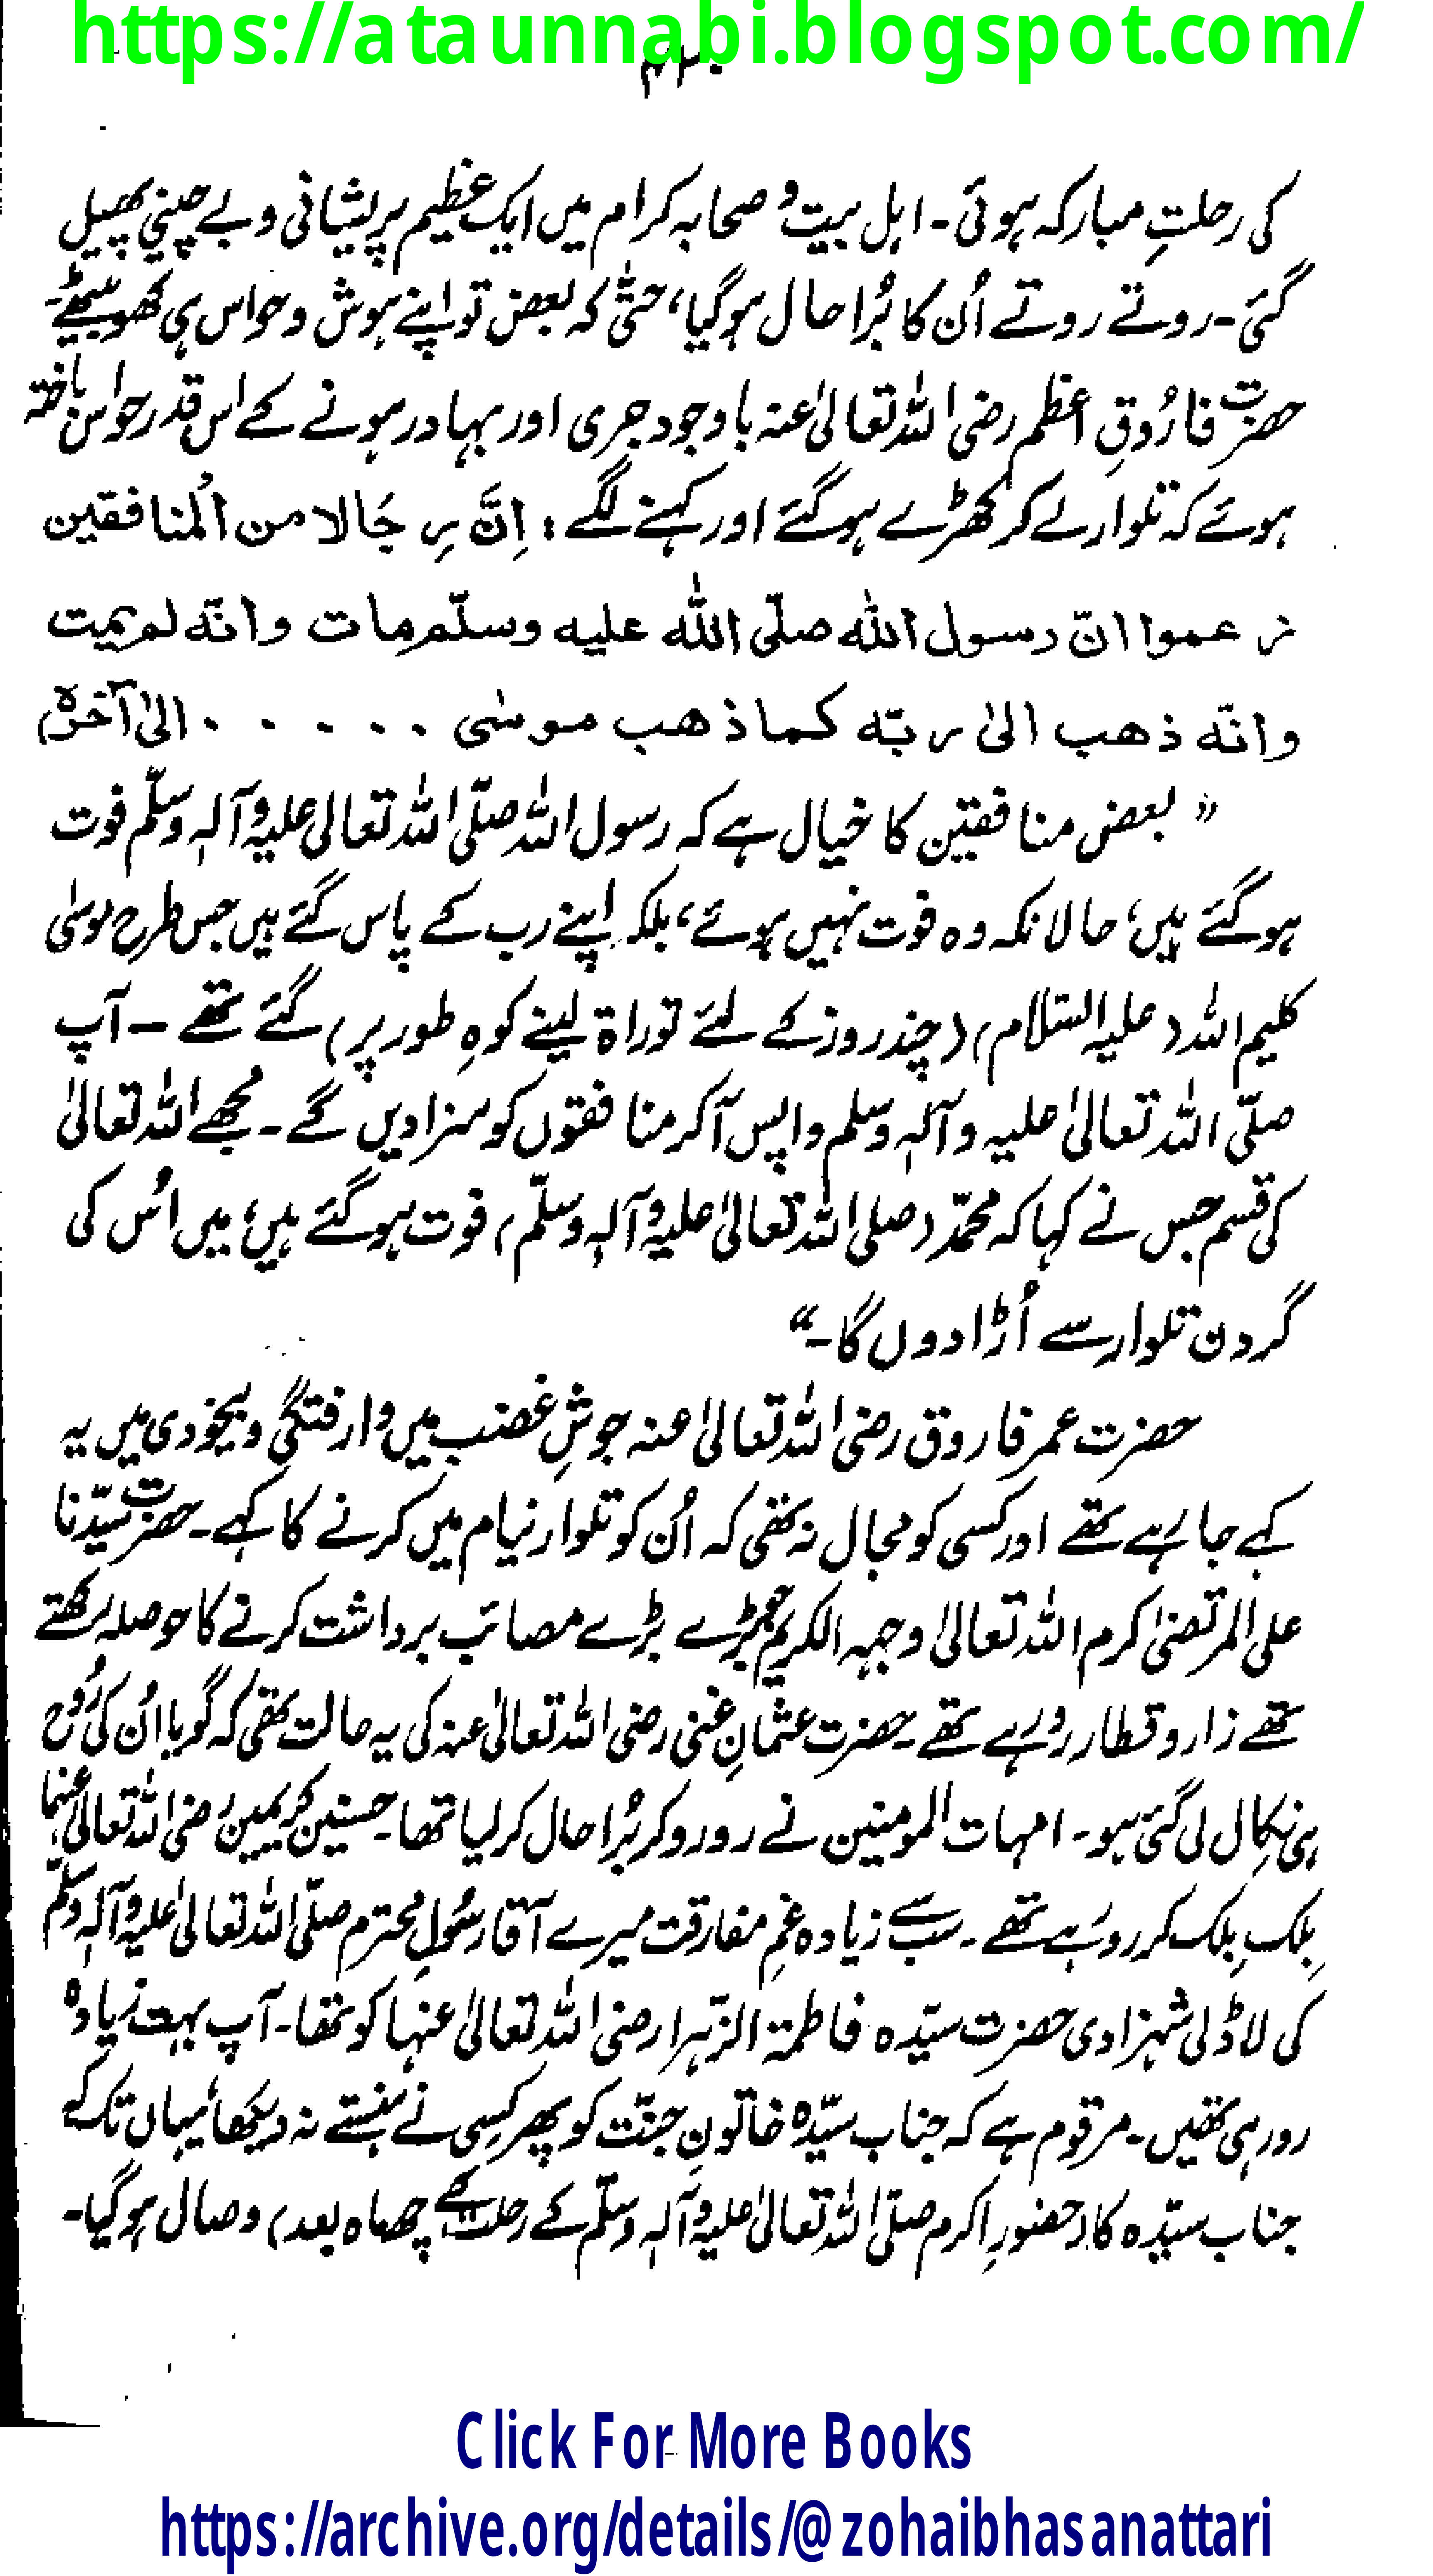 https://ataunnabi.blogspot.com/
۴۳۰
کی رحلتِ مبارکہ ہوئی۔ اہل بیت و صحابہ کرام میں ایک عظیم پریشانی و بے چینی پھیل
گئی۔ روتے روتے اُن کا بُرا حال ہوگیا، حتّٰی کہ بعض تو اپنے ہوش و حواس ہی کھو بیٹھے۔
حضرت فارُوقِ اعظم رضی اللہ تعالیٰ عنہ باوجود جری اور بہادر ہونے کے اس قدر حواس باختہ
ہوئے کہ تلوار لے کر کھڑے ہوگئے اور کہنے لگے: اِنَّ رِجَالا من المُنافقین
زعموا انّ رسول اللہ صلّی اللہ علیہ وسلّم مات وانّہ لم یمت
وانّہ ذھب الیٰ ربّہ کما ذھب موسٰی ۔ ۔ ۔ ۔ ۔ الیٰ آخرہٖ)
” بعض منافقین کا خیال ہے کہ رسول اللہ صلّی اللہ تعالیٰ علیہ وآلہٖ وسلّم فوت
ہوگئے ہیں، حالانکہ وہ فوت نہیں ہوئے، بلکہ اپنے رب کے پاس گئے ہیں جس طرح موسٰی
کلیم اللہ (علیہ السّلام) (چند روز کے لئے توراۃ لینے کوہِ طور پر) گئے تھے — آپ
صلّی اللہ تعالیٰ علیہ وآلہٖ وسلم واپس آکر منافقوں کو سزا دیں گے۔ مُجھے اللہ تعالیٰ
کی قسم جس نے کہا کہ محمّد (صلی اللہ تعالیٰ علیہ وآلہٖ وسلّم) فوت ہوگئے ہیں، میں اُس کی
گردن تلوار سے اُڑا دوں گا۔“
حضرت عمر فاروق رضی اللہ تعالیٰ عنہ جوشِ غضب میں وارفتگی و بیخودی میں یہ
کہے جا رہے تھے اور کسی کو مجال نہ تھی کہ اُن کو تلوار نیام میں کرنے کا کہے۔ حضرت سیّدنا
علی المرتضیٰ کرم اللہ تعالیٰ وجہہ الکریم جو بڑے بڑے مصائب برداشت کرنے کا حوصلہ رکھتے
تھے زار و قطار رو رہے تھے۔ حضرت عثمانِ غنی رضی اللہ تعالیٰ عنہ کی یہ حالت تھی کہ گویا اُن کی رُوح
ہی نکال لی گئی ہو۔ امہات المومنین نے رو رو کر بُرا حال کر لیا تھا۔ حسنین کریمین رضی اللہ تعالیٰ عنہما
بِلک بِلک کر رو رہے تھے۔ سب سے زیادہ غمِ مفارقت میرے آقا رسُولِ محترم صلّی اللہ تعالیٰ علیہ وآلہٖ وسلّم
کی لاڈلی شہزادی حضرت سیّدہ فاطمۃ الزّہرا رضی اللہ تعالیٰ عنہا کو تھا۔ آپ بہت زیادہ
رو رہی تھیں۔ مرقوم ہے کہ جناب سیّدہ خاتونِ جنّت کو پھر کسی نے ہنستے نہ دیکھا، یہاں تک کہ
جناب سیّدہ کا (حضورِ اکرم صلّی اللہ تعالیٰ علیہ وآلہٖ وسلّم کے رحلت کے چھ ماہ بعد) وصال ہوگیا۔
Click For More Books
https://archive.org/details/@zohaibhasanattari